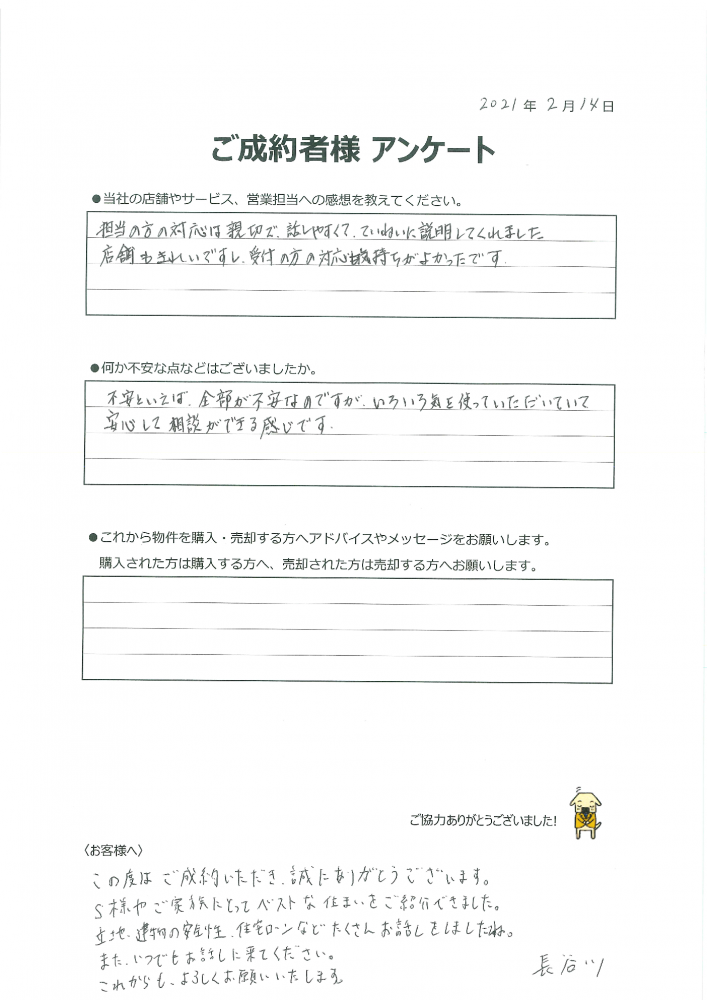 2021年 2月14日
ご成約者様 アンケート
●当社の店舗やサービス、営業担当への感想を教えてください。
担当の方の対応は親切で、話しやすくて、ていねいに説明してくれました
店舗もきれいですし、受付の方の対応も気持ちがよかったです.
●何か不安な点などはございましたか。
不安といえば、全部が不安なのですが、いろいろ気を使っていただいていて
安心して相談ができる感じです.
●これから物件を購入・売却する方へアドバイスやメッセージをお願いします。
購入された方は購入する方へ、売却された方は売却する方へお願いします。
ご協力ありがとうございました!
〈お客様へ〉
この度はご成約いただき、誠にありがとうございます。
S様やご家族にとってベストな住まいをご紹介できました。
立地、建物の安全性、住宅ローンなどたくさんお話しをしましたね。
また、いつでもお話しに来てください。
これからも、よろしくお願いいたします
長谷川